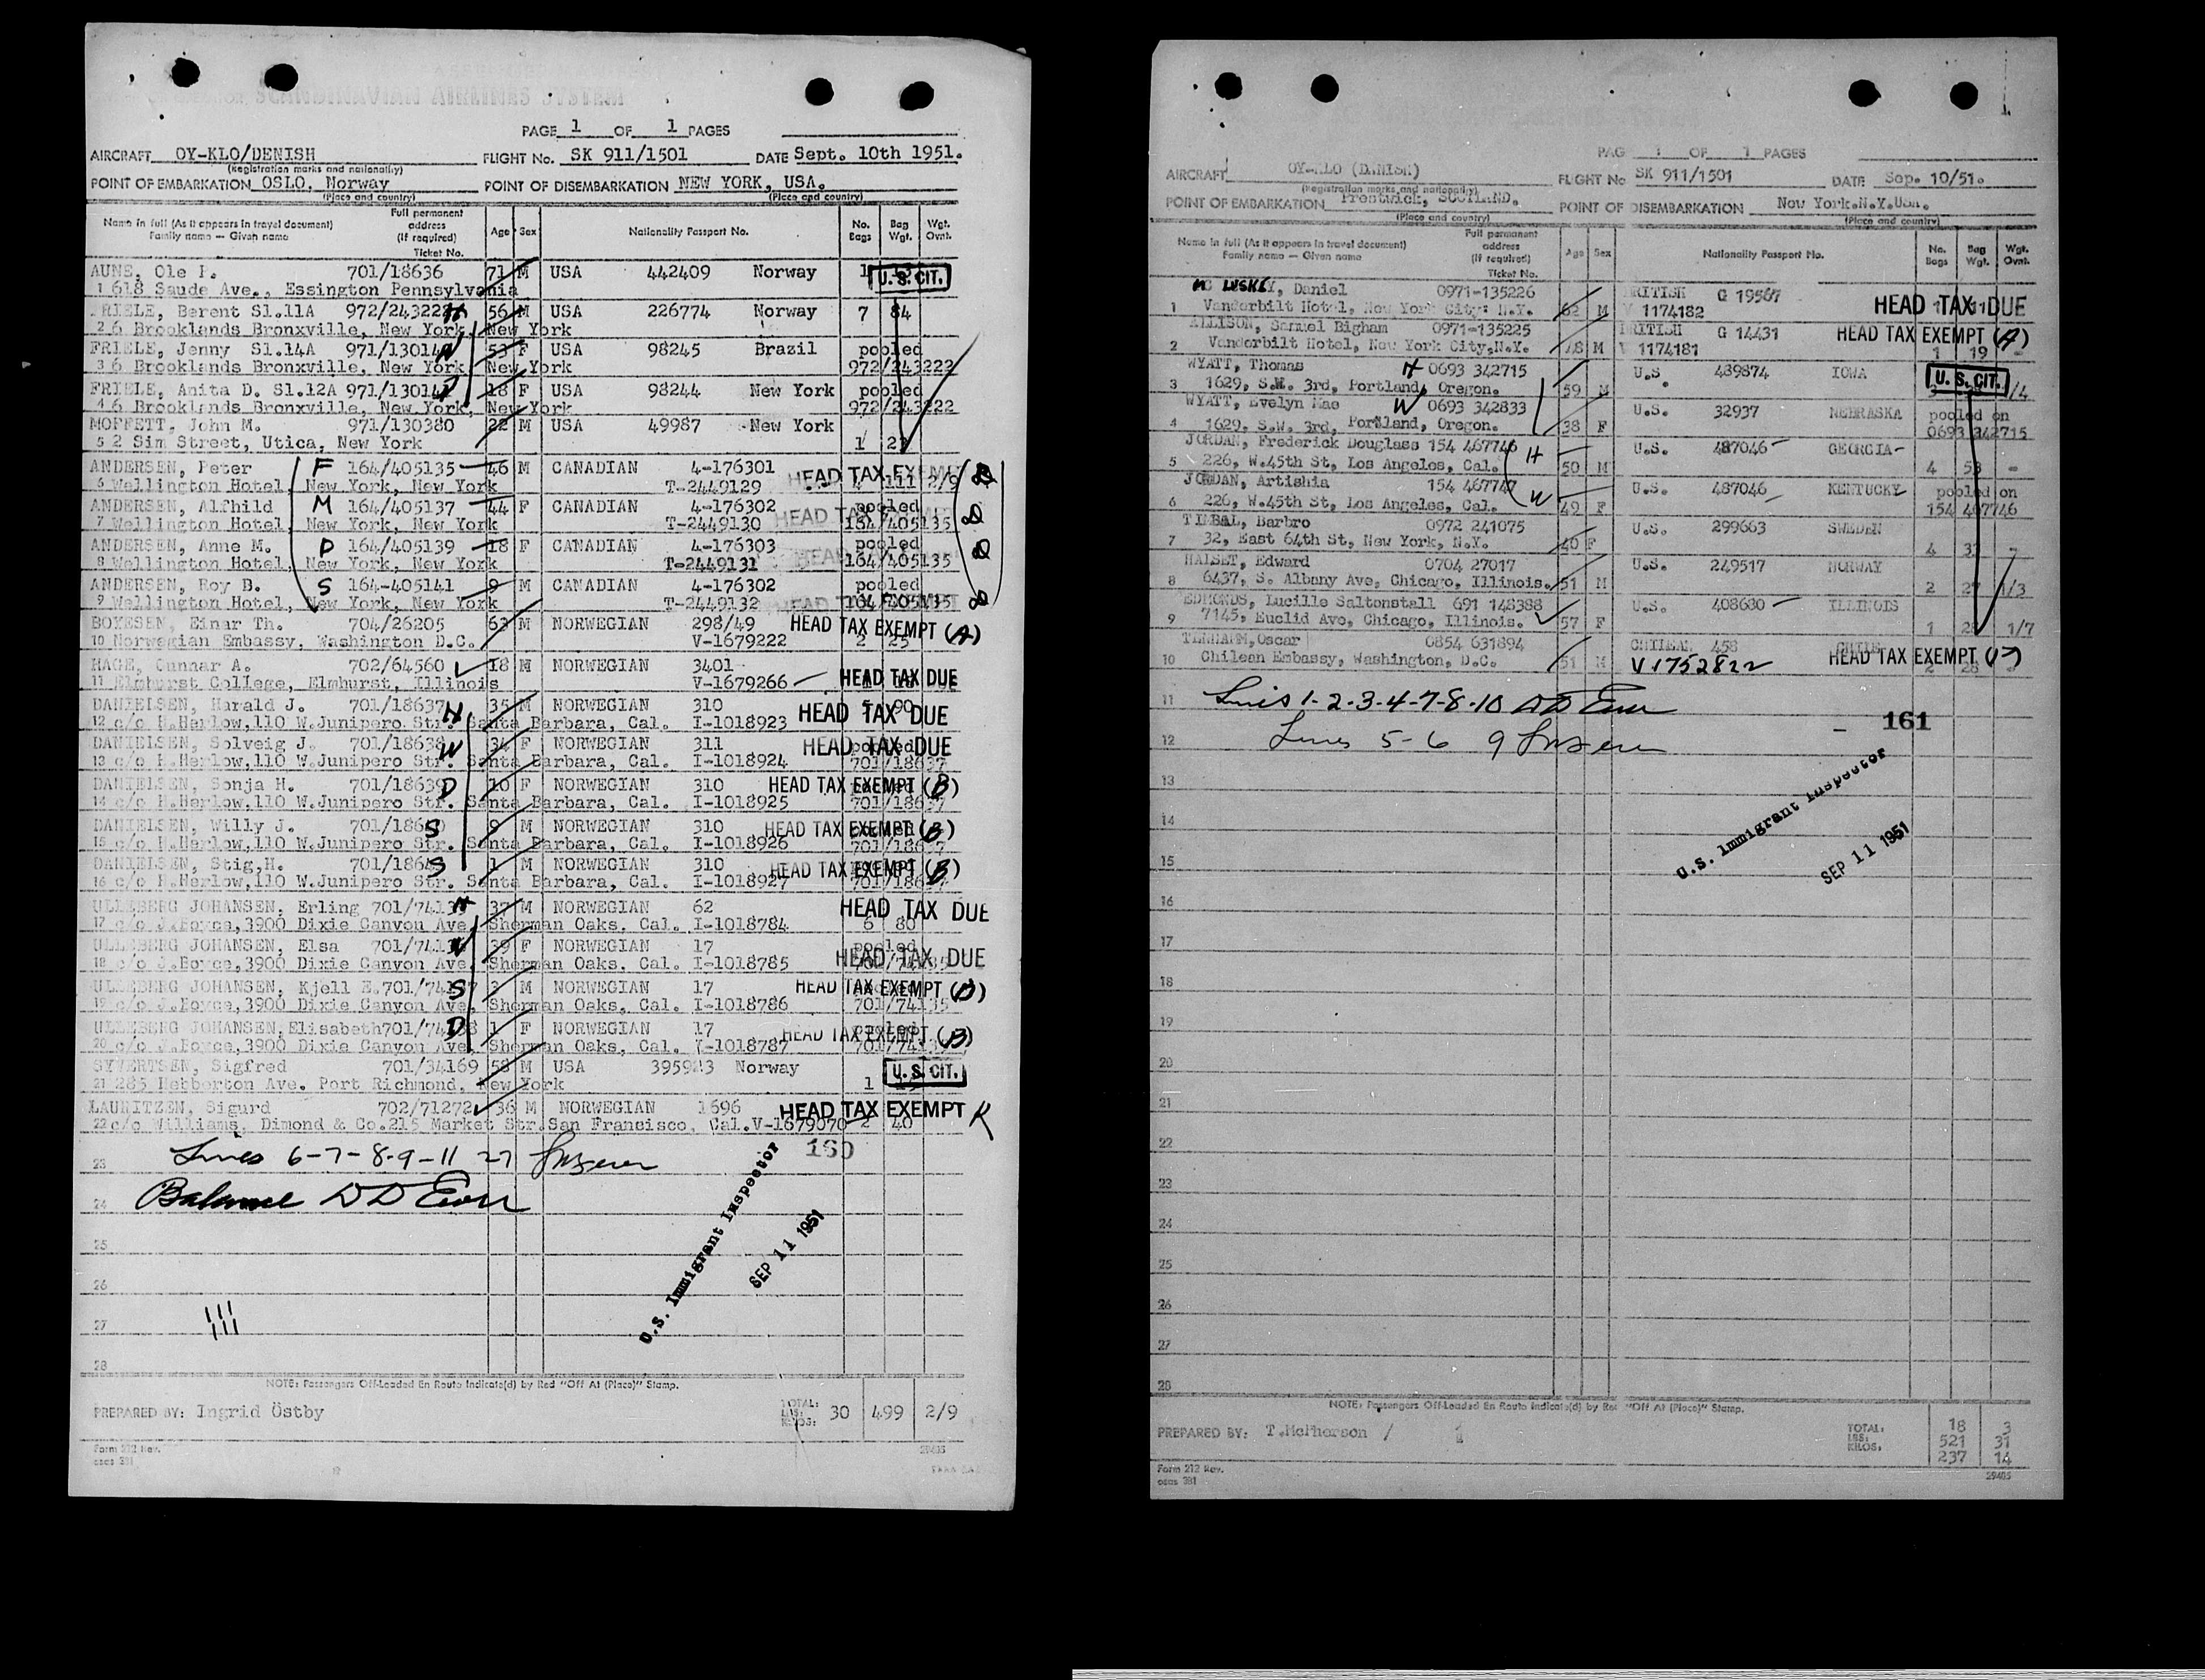 SCANDINAVIAN AIRLINES SYSTEM
PAGE 1 OF 1 PAGES
AIRCRAFT OY-KLO/DENISH FLIGHT No. SK 911/1501 DATE Sept. 10th 1951.
(Registration marks and nationality)
POINT OF EMBARKATION OSLO, Norway POINT OF DISEMBARKATION NEW YORK, USA.
(Place and country) (Place and country)
Name in full (As it appears in travel document) Family name — Given name Full permanent address (If required) Ticket No. Age Sex Nationality Passport No. No. Bags Bag Wgt. Wgt. Ovnt.
AUNE, Ole P. 701/18636 71 M USA 442409 Norway 1 U.S. CIT.
1 618 Saude Ave., Essington Pennsylvania
FRIELE, Berent Sl.11A 972/243222 H 56 M USA 226774 Norway 7 84
2 6 Brooklands Bronxville, New York, New York
FRIELE, Jenny Sl.14A 971/13014 W 53 F USA 98245 Brazil pooled
3 6 Brooklands Bronxville, New York, New York 972/243222
FRIELE, Anita D. Sl.12A 971/13014 D 18 F USA 98244 New York pooled
4 6 Brooklands Bronxville, New York, New York 972/243222
MOFFETT, John M. 971/130380 22 M USA 49987 New York
5 2 Sim Street, Utica, New York 1 22
ANDERSEN, Peter F 164/405135 46 M CANADIAN 4-176301 HEAD TAX EXEMPT
6 Wellington Hotel, New York, New York T-2449129 111 2/9
ANDERSEN, Alfhild M 164/405137 44 F CANADIAN 4-176302 pooled HEAD TAX
7 Wellington Hotel, New York, New York T-2449130 164/405135
ANDERSEN, Anne M. D 164/405139 18 F CANADIAN 4-176303 pooled
8 Wellington Hotel, New York, New York T-2449131 164/405135
ANDERSEN, Roy B. S 164-405141 9 M CANADIAN 4-176302 pooled
9 Wellington Hotel, New York, New York T-2449132 164/405135 HEAD TAX EXEMPT
BOYESEN, Einar Th. 704/26205 63 M NORWEGIAN 298/49 HEAD TAX EXEMPT (A)
10 Norwegian Embassy, Washington D.C. V-1679222 2 25
HAGE, Gunnar A. 702/64560 18 M NORWEGIAN 3401
11 Elmhurst College, Elmhurst, Illinois V-1679266 HEAD TAX DUE
DANIELSEN, Harald J. 701/18637 H 35 M NORWEGIAN 310 5 90 HEAD TAX DUE
12 c/o H.Harlow,110 W.Junipero Str. Santa Barbara, Cal. I-1018923
DANIELSEN, Solveig J. 701/18638 W 34 F NORWEGIAN 311 pooled HEAD TAX DUE
13 c/o H.Harlow,110 W.Junipero Str. Santa Barbara, Cal. I-1018924 701/18637
DANIELSEN, Sonja H. 701/18639 D 10 F NORWEGIAN 310 HEAD TAX EXEMPT (B)
14 c/o H.Harlow,110 W.Junipero Str. Santa Barbara, Cal. I-1018925 701/18637
DANIELSEN, Willy J. 701/186 S 9 M NORWEGIAN 310 HEAD TAX EXEMPT (B)
15 c/o H.Harlow,110 W.Junipero Str. Santa Barbara, Cal. I-1018926 701/18637
DANIELSEN, Stig,H. 701/1864 S 1 M NORWEGIAN 310 HEAD TAX EXEMPT (B)
16 c/o H.Harlow,110 W.Junipero Str. Santa Barbara, Cal. I-1018927 701/18637
ULLEBERG JOHANSEN, Erling 701/7413 H 37 M NORWEGIAN 62 HEAD TAX DUE
17 c/o J.Boyce,3900 Dixie Canyon Ave, Sherman Oaks, Cal. I-1018784 6 80
ULLEBERG JOHANSEN, Elsa 701/7413 W 39 F NORWEGIAN 17 pooled HEAD TAX DUE
18 c/o J.Boyce,3900 Dixie Canyon Ave, Sherman Oaks, Cal. I-1018785 701/74135
ULLEBERG JOHANSEN, Kjell E.701/7417 S 3 M NORWEGIAN 17 HEAD TAX EXEMPT (B)
19 c/o J.Boyce,3900 Dixie Canyon Ave, Sherman Oaks, Cal. I-1018786 701/74135
ULLEBERG JOHANSEN,Elisabeth701/74 D 1 F NORWEGIAN 17 HEAD TAX EXEMPT (B)
20 c/o J.Boyce,3900 Dixie Canyon Ave, Sherman Oaks, Cal. I-1018787 701/74135
SYVERTSEN, Sigfred 701/34169 58 M USA 395923 Norway U.S. CIT.
21 285 Hebberton Ave. Port Richmond, New York 1
LAURITZEN, Sigurd 702/71272 36 M NORWEGIAN 1696 HEAD TAX EXEMPT K
22 c/o Williams, Dimond & Co.215 Market Str.San Francisco, Cal.V-1679070 2 40
23 Lines 6-7-8-9-11 27 160
24 Balance
25
26
27
28
U.S. Immigrant Inspector
SEP 11 1951
NOTE: Passengers Off-Loaded En Route Indicate(d) by Red "Off At (Place)" Stamp.
PREPARED BY: Ingrid Östby TOTAL: LBS: KILOS: 30 499 2/9
Form 212 Rev.
osas 381 29405
PAGE 1 OF 1 PAGES
AIRCRAFT OY-KLO (DENISH) FLIGHT No SK 911/1501 DATE Sep. 10/51.
(Registration marks and nationality)
POINT OF EMBARKATION Prestwick, SCOTLAND. POINT OF DISEMBARKATION New York.N.Y.Usa.
(Place and country) (Place and country)
Name in full (As it appears in travel document) Family name — Given name Full permanent address (If required) Ticket No. Age Sex Nationality Passport No. No. Bags Bag Wgt. Wgt. Ovnt.
Mc LUSKEY, Daniel 0971-135226 BRITISH G 19567
1 Vanderbilt Hotel, New York City: N.Y. 62 M V 1174182 HEAD TAX DUE
ELLISON, Samuel Bigham 0971-135225 BRITISH G 14431 HEAD TAX EXEMPT (A)
2 Vanderbilt Hotel, New York City,N.Y. 78 M V 1174181 1 19 -
WYATT, Thomas H 0693 342715 U.S. 439874 IOWA U.S. CIT.
3 1629, S.W. 3rd, Portland, Oregon. 59 M /4
WYATT, Evelyn Mae W 0693 342833 U.S. 32937 NEBRASKA pooled on
4 1629, S.W. 3rd, Portland, Oregon. 38 F 0693 342715
JORDAN, Frederick Douglass 154 467746 H U.S. 487046 GEORGIA
5 226, W.45th St, Los Angeles, Cal. 50 M 4 53 -
JORDAN, Artishia 154 467747 W U.S. 487046 KENTUCKY pooled on
6 226, W.45th St, Los Angeles, Cal. 49 F 154 467746
TIMBAL, Barbro 0972 241075 U.S. 299663 SWEDEN
7 32, East 64th St, New York, N.Y. 40 F 4 3 -
HALSET, Edward 0704 27017 U.S. 249517 NORWAY
8 6437, S. Albany Ave, Chicago, Illinois. 51 M 2 27 1/3
EDMONDS, Lucille Saltonstall 691 148388 U.S. 408680 ILLINOIS
9 7145, Euclid Ave, Chicago, Illinois. 57 F 1 28 1/7
Oscar 0854 631894 CHILEAN 458 CHILE
10 Chilean Embassy, Washington, D.C. 51 M V 1752822 HEAD TAX EXEMPT 2 28
11 Lines 1-2-3-4-7-8-10
12 Lines 5-6 9 - 161
13
14
15
16
17
18
19
20
21
22
23
24
25
26
27
28
U.S. Immigrant Inspector
SEP 11 1951
NOTE: Passengers Off-Loaded En Route Indicate(d) by Red "Off At (Place)" Stamp.
PREPARED BY: T.McPherson / TOTAL: 18 3
LBS: 521 31
KILOS: 237 14
Form 212 Rev.
osas 381 29405